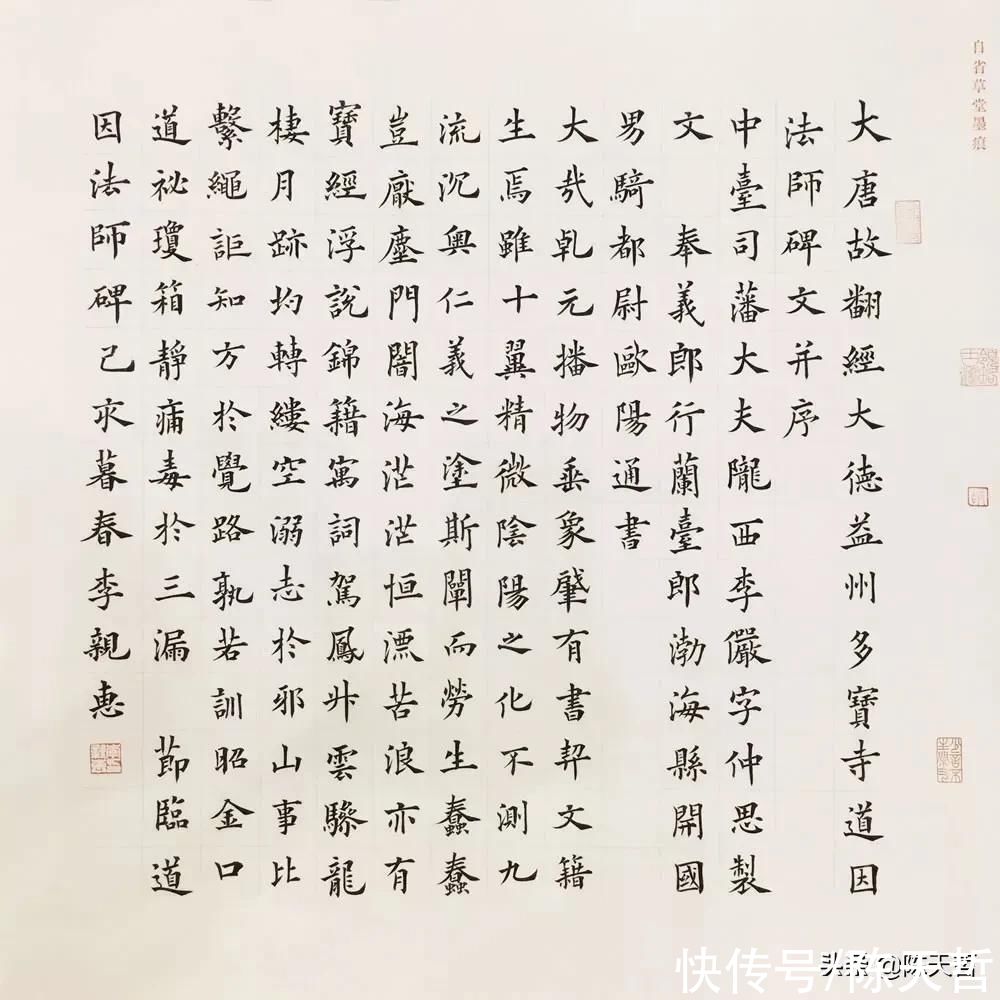 自省草堂墨痕
大唐故翻經大德益州多寶寺道因
法師碑文并序
中臺司藩大夫隴西李儼字仲思製
文　奉義郎行蘭臺郎渤海縣開國
男騎都尉歐陽通書
大哉乹元播物垂象肇有書契文籍
生焉雖十翼精微陰陽之化不測九
流沉奥仁義之塗斯闡而勞生蠢蠢
豈厭塵門闇海茫茫恒漂苦浪亦有
寶經浮說錦籍寓詞駕鳳升雲驂龍
棲月跡均轉縷空溺志於邪山事比
繫繩詎知方於覺路孰若訓昭金口
道祕瓊箱靜痡毒於三漏　節臨道
因法師碑己亥暮春李親惠
快传号/陈天哲
头条 @陈天哲